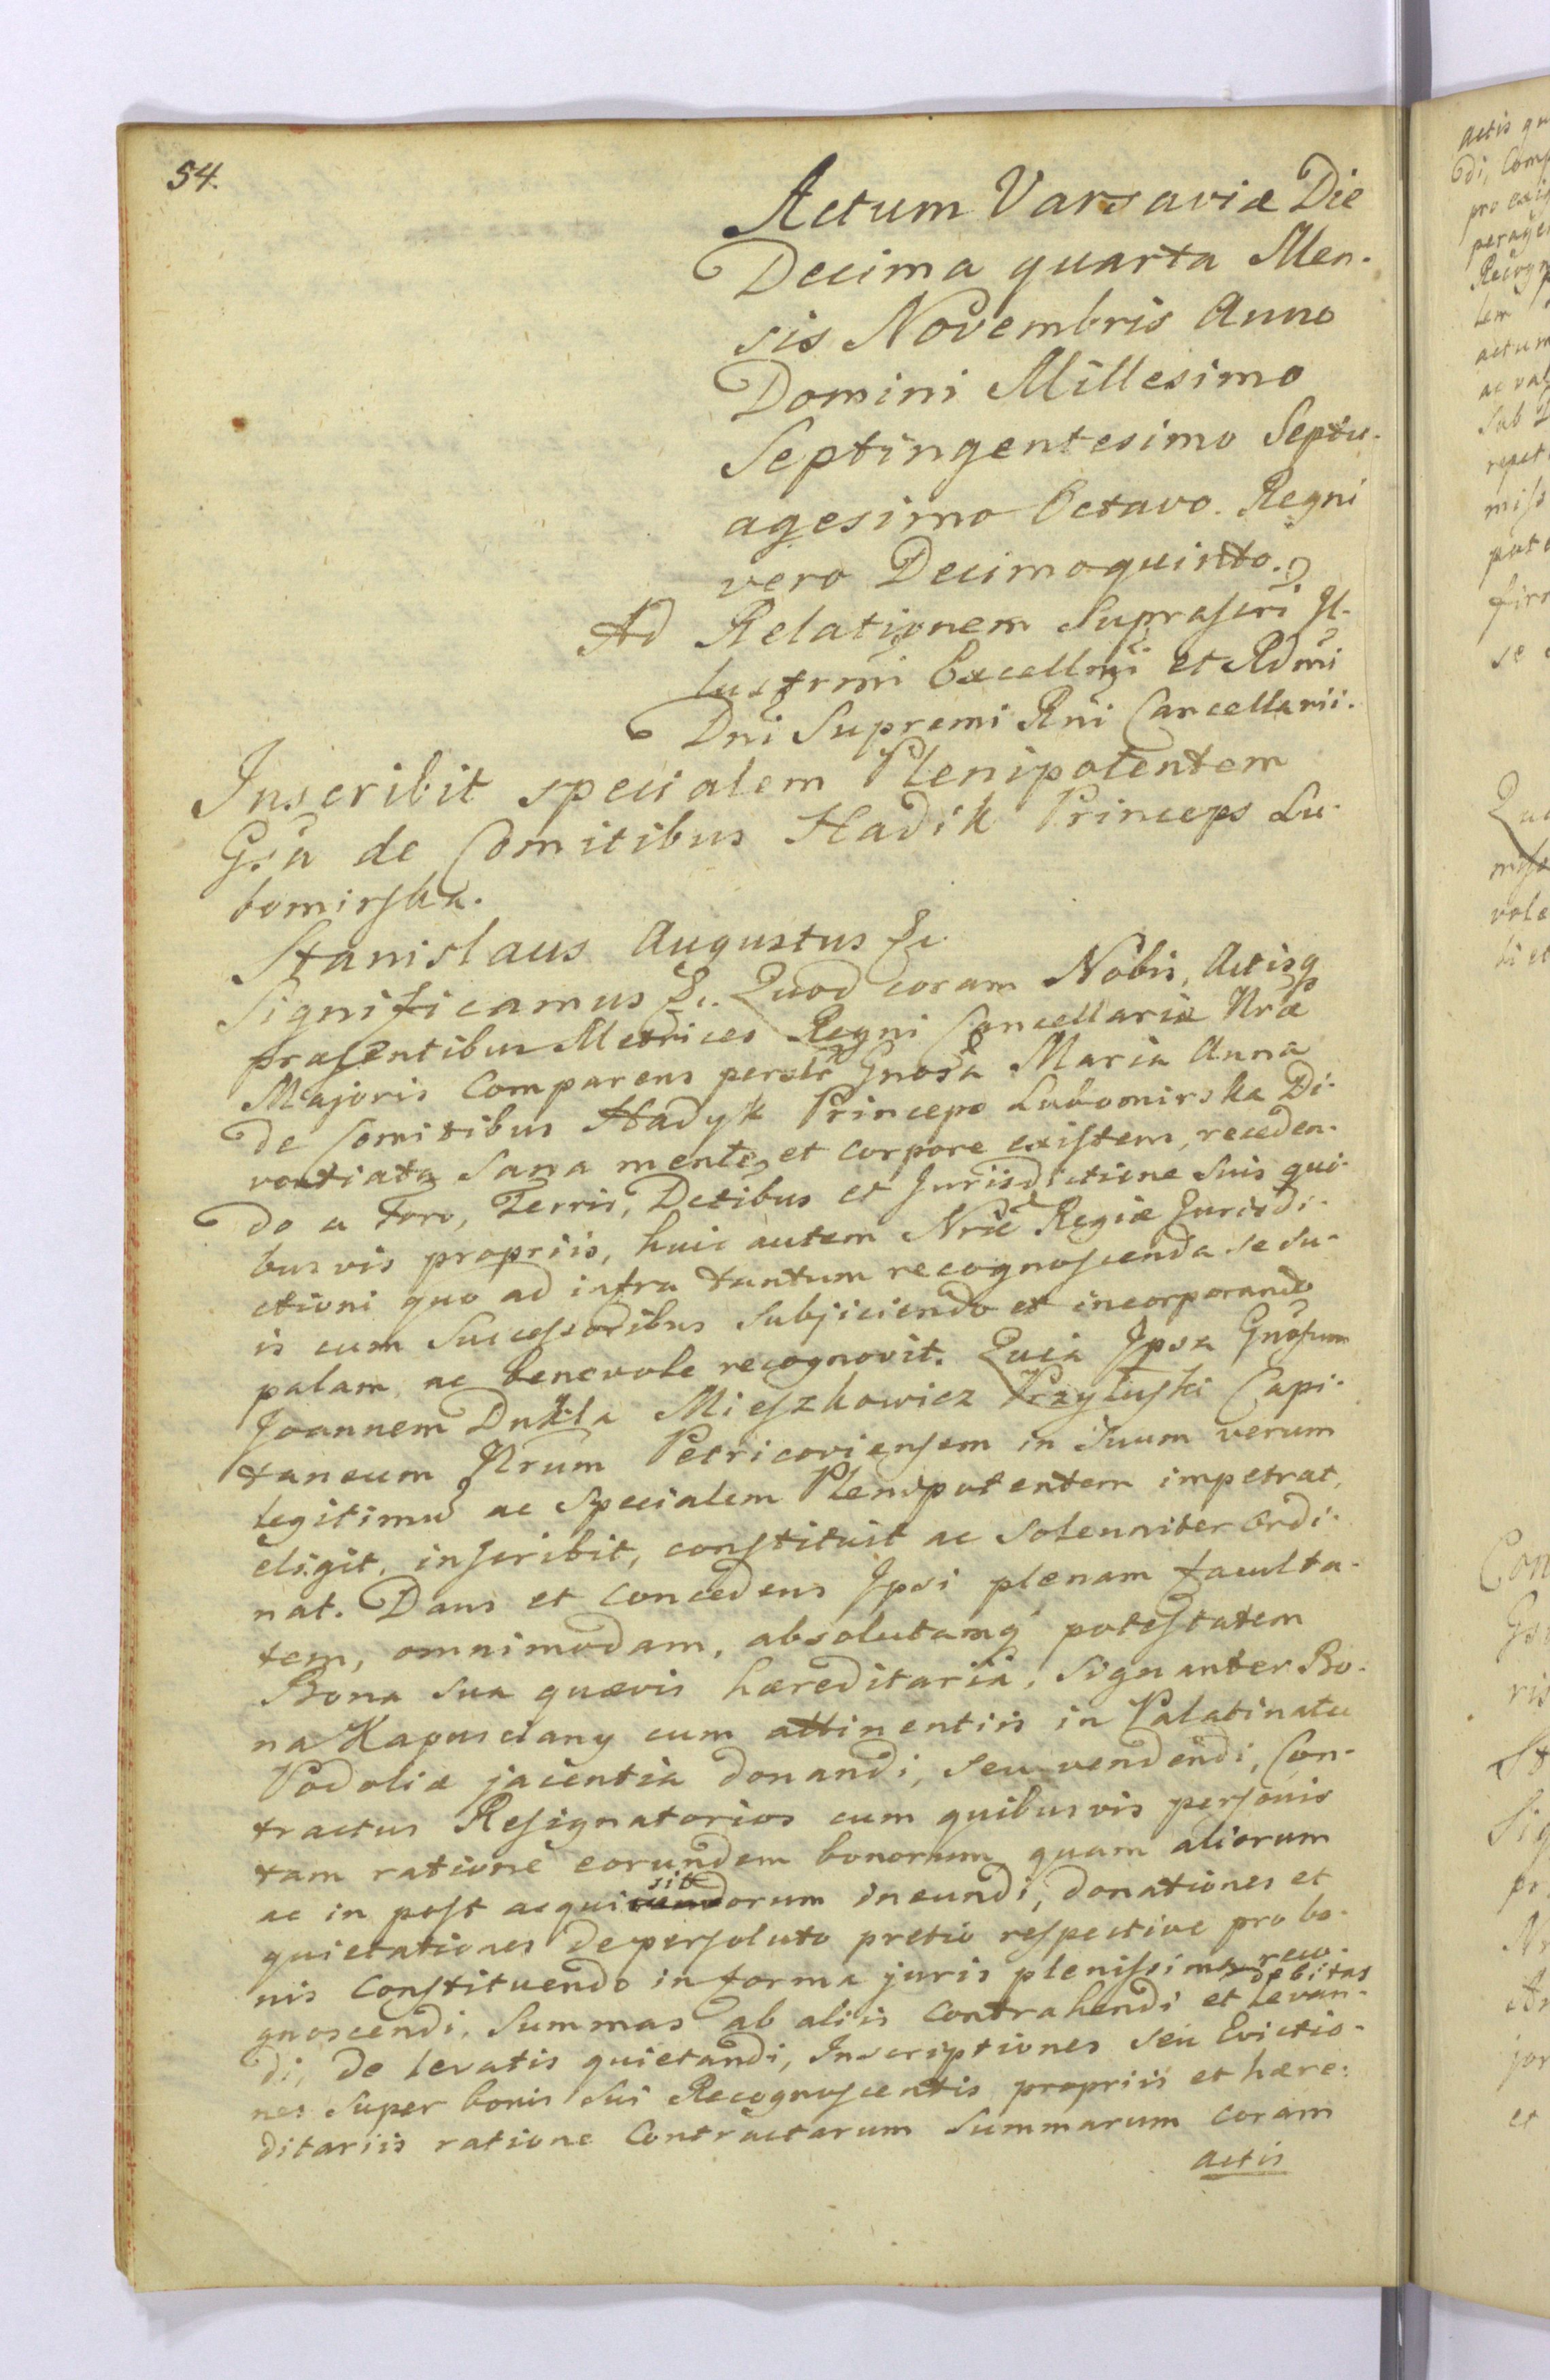 54.
Actum Varsaviæ Die
Decima quarta Men-
sis Novembris Anno
Domini Millesimo
Septingentesimo Septu-
agesimo Octavo. Regni
vero Decimoquinto.
Ad Relationem Suprascri Il-
lustrmi Excellmi et Rdmi
Dni Supremi Rni Cancellarii.
Inscribit specialem Plenipotentem
Gsa de Comitibus Hadik Princeps Lu-
bomirska.
Stanislaus Augustus &c.
Significamus &c. Quod coram Nobis, Actisq
præsentibus Metrices Regni Cancellariæ Nræ
Majoris Comparens personlr Gnosa Maria Anna
de Comitibus Hadyk Princeps Lubomirska Di-
vortiata sana mente et corpore existens, receden-
do a Foro, Terris, Dctibus et Jurisdictione suis qui-
busvis propriis, huic autem Nræ Regiæ Jurisdi-
ctioni quo ad infra tantum recognoscenda se su-
is cum Successoribus subjiciendo et incorporando
palam, ac benevole recognovit. Quia Ipsa Gnosum
Joannem Dukla Mieszkowicz Przyłuski Capi-
taneum Nrum Petricoviensem in suum verum
legitimu ac specialem Plenipotentem impetrat,
eligit, inscribit, constituit ac solenniter ordi-
nat. Dans et concedens Ipsi plenam faculta-
tem, omnimodam, absolutamq potestatem
Bona sua quævis hæreditaria, signanter Bo-
na Kapusciany cum attinentiis in Palatinatu
Podoliæ jacentia donandi, seu vendendi, Con-
tractus Resignatorios cum quibusvis personis
tam ratione eorundem bonorum quam aliorum
sit
ac in post acquirendorum ineundi, donationes et
quietationes de persoluto pretio respective pro bo-
nis constituendo in forma juris plenissima reco-
gnoscendi, Summas ab aliis contrahendi et debitas levan-
di, de levatis quietandi, Inscriptiones seu Evictio-
nes super bonis sui Recognoscentis propriis et hære-
ditariis ratione Contractarum Summarum coram
actis